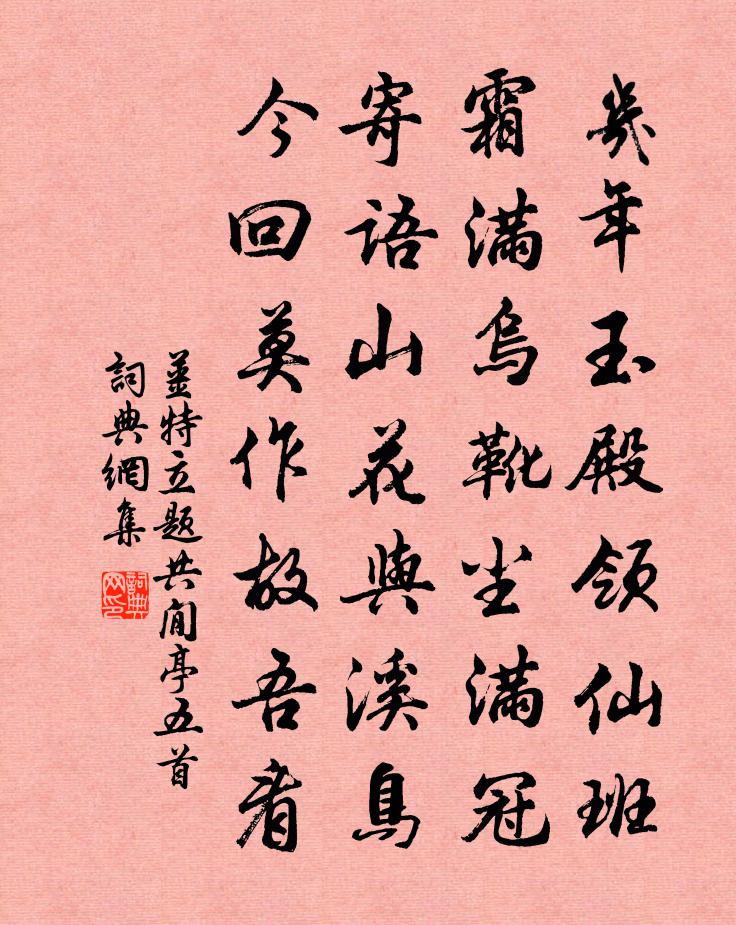 幾年玉殿領仙班
霜滿烏靴尘滿冠
寄語山花與溪鳥
今回莫作故吾看
姜特立題共閒亭五首
詞典網集
詞典网印